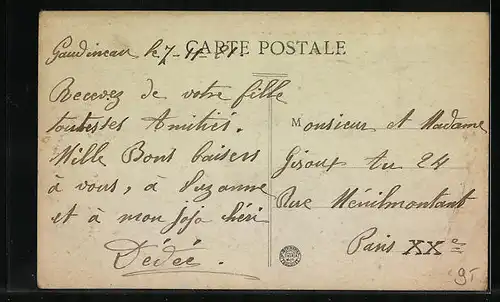 CARTE POSTALE
le 7-11-21.
Recevez de votre fille
toutes ses Amitiés.
Mille Bons baisers
à vous, à Suzanne
et à mon jojo chéri
Dédée.
Monsieur et Madame
24
Rue Ménilmontant
Paris XXe